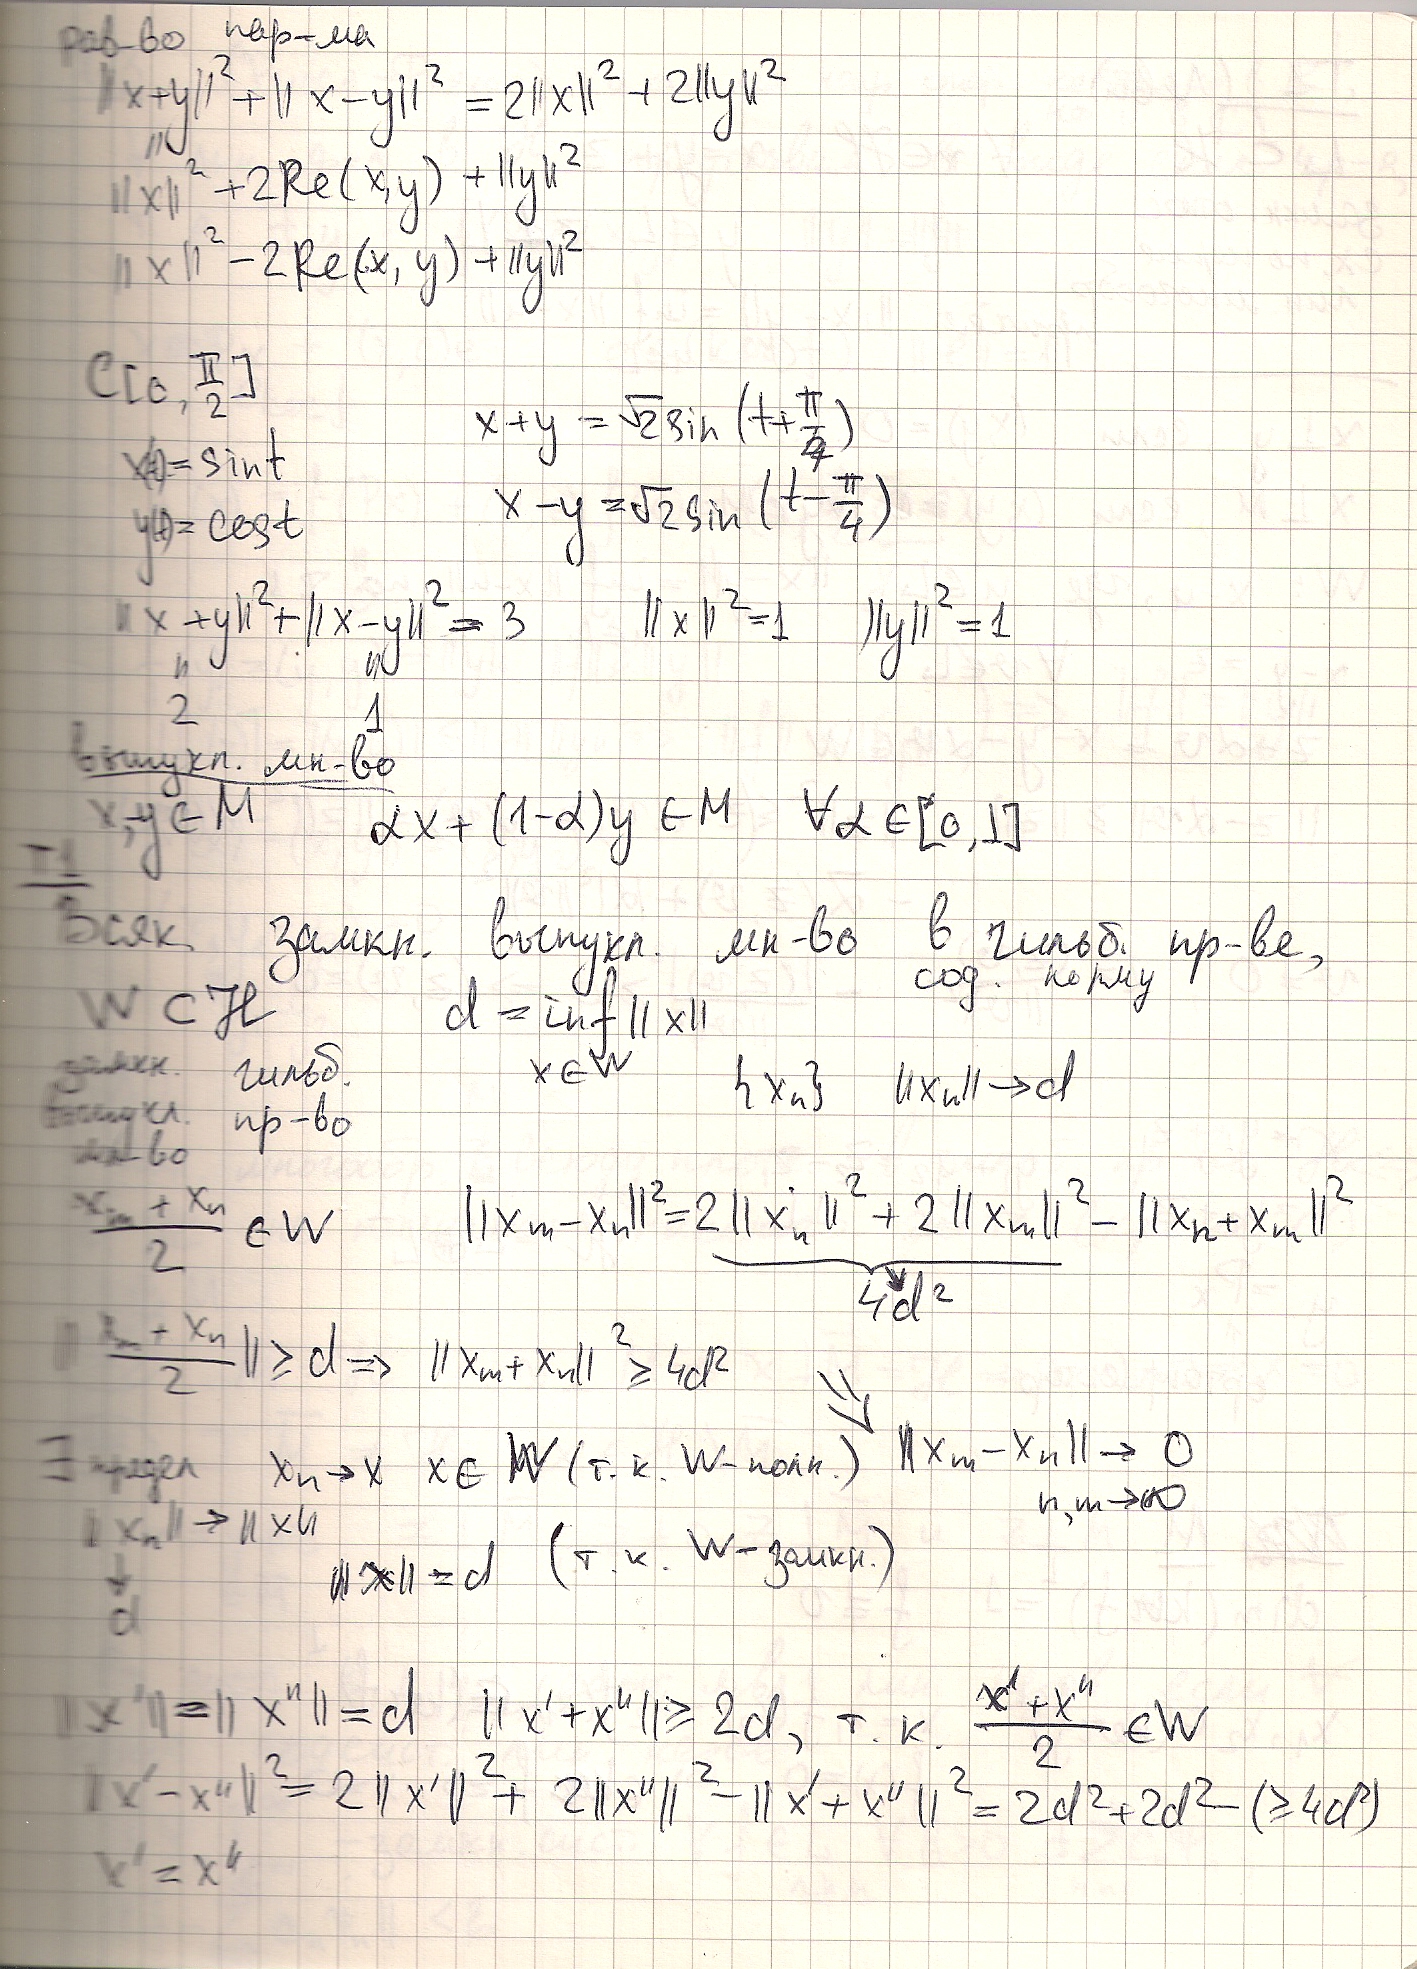 рав-во пар-ма
||x+y||² + ||x-y||² = 2||x||² + 2||y||²
||
||x||² + 2Re(x,y) + ||y||²
||x||² - 2Re(x,y) + ||y||²
C[0, π/2]
x+y = √2 sin(t+π/4)
x(t) = sin t
x-y = √2 sin(t-π/4)
y(t) = cos t
||x+y||² + ||x-y||² = 3 ||x||² = 1 ||y||² = 1
|| ||
2 1
выпукл. мн-во
x,y ∈ M αx + (1-α)y ∈ M ∀α ∈ [0,1]
T1
Всяк. замкн. выпукл. мн-во в гильб. пр-ве,
сод. норму
W ⊂ H d = inf ||x||
x ∈ W
замкн. гильб.
{xₙ} ||xₙ|| → d
выпукл. пр-во
мн-во
(xₘ + xₙ)/2 ∈ W ||xₘ - xₙ||² = 2||xₙ||² + 2||xₘ||² - ||xₙ + xₘ||²
↓
4d²
||(xₘ + xₙ)/2|| ≥ d ⇒ ||xₘ + xₙ||² ≥ 4d²
⇒
∃ предел xₙ → x x ∈ W (т.к. W-полн.) ||xₘ - xₙ|| → 0
n,m → ∞
||xₙ|| → ||x||
↓ ||x|| = d (т.к. W-замкн.)
d
||x'|| = ||x''|| = d ||x' + x''|| ≥ 2d, т.к. (x' + x'')/2 ∈ W
||x' - x''||² = 2||x'||² + 2||x''||² - ||x' + x''||² = 2d² + 2d² - (≥4d²)
x' = x''